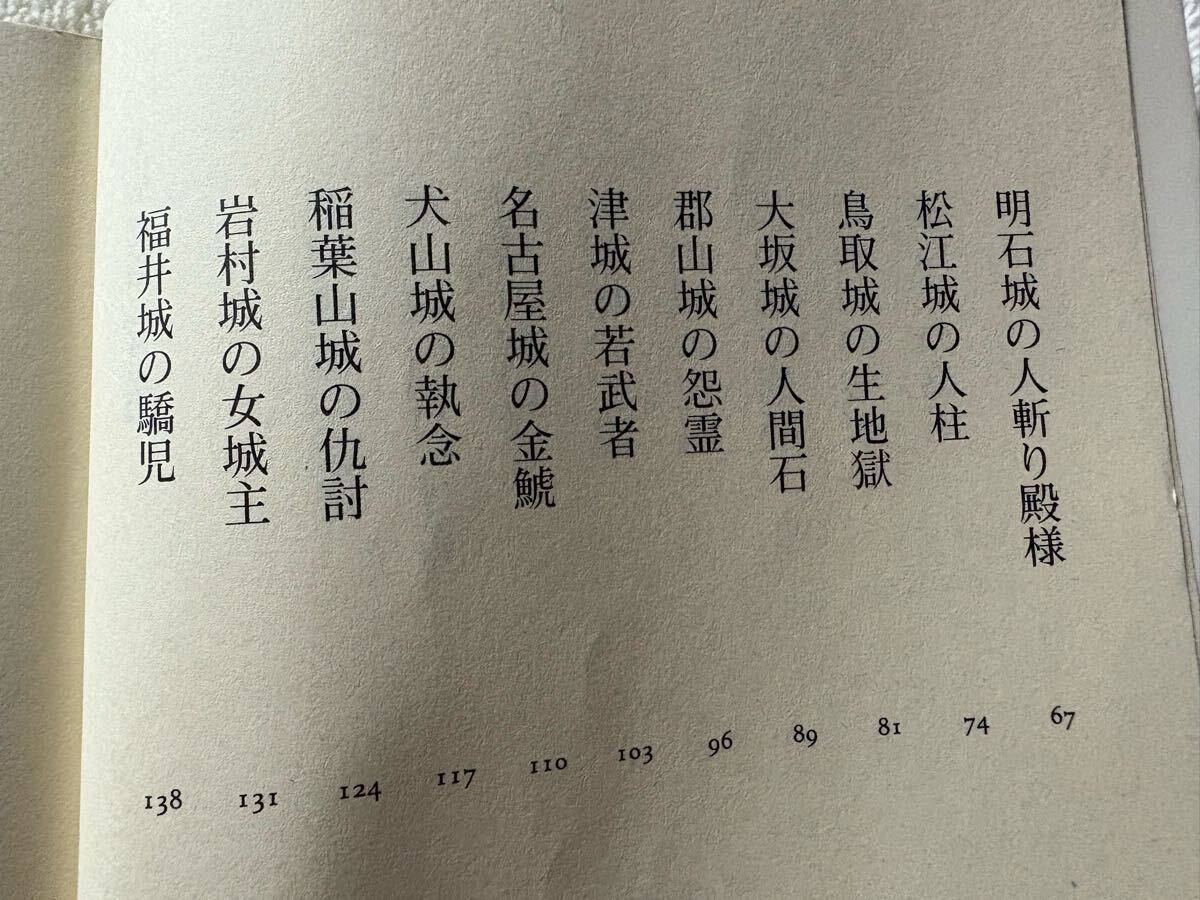 明石城の人斬り殿様 67
松江城の人柱 74
鳥取城の生地獄 81
大坂城の人間石 89
郡山城の怨霊 96
津城の若武者 103
名古屋城の金鯱 110
犬山城の執念 117
稲葉山城の仇討 124
岩村城の女城主 131
福井城の驕児 138